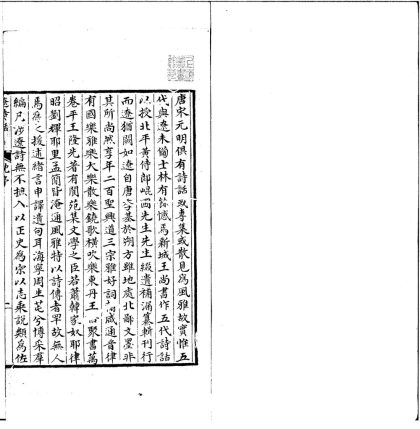 唐宋元明俱有詩話或專集或散見為風雅故實惟五
代與遼未備士林有餘憾焉新城王尚書作五代詩話
以授北平黃侍郎崐圃先生先生綴遺補漏纂輯刊行
而遼猶闕如遼自唐季基於朔方雖地處北鄙文墨非
其所尚然享年二百聖興道三宗雅好詞翰咸通音律
有國樂雅樂大樂散樂鐃歌橫吹樂東丹王 聚書萬
卷平王隆先著有閬苑集文學之臣若蕭韓家奴耶律
昭劉輝耶里孟簡皆淹通風雅特以詩傳者罕故無人
焉為之援述緒言申譯遺句耳海寧周生芚兮博采群
編凡涉遼詩無不摭入以正史為宗以志乘說類為佐
遼詩話 序 二